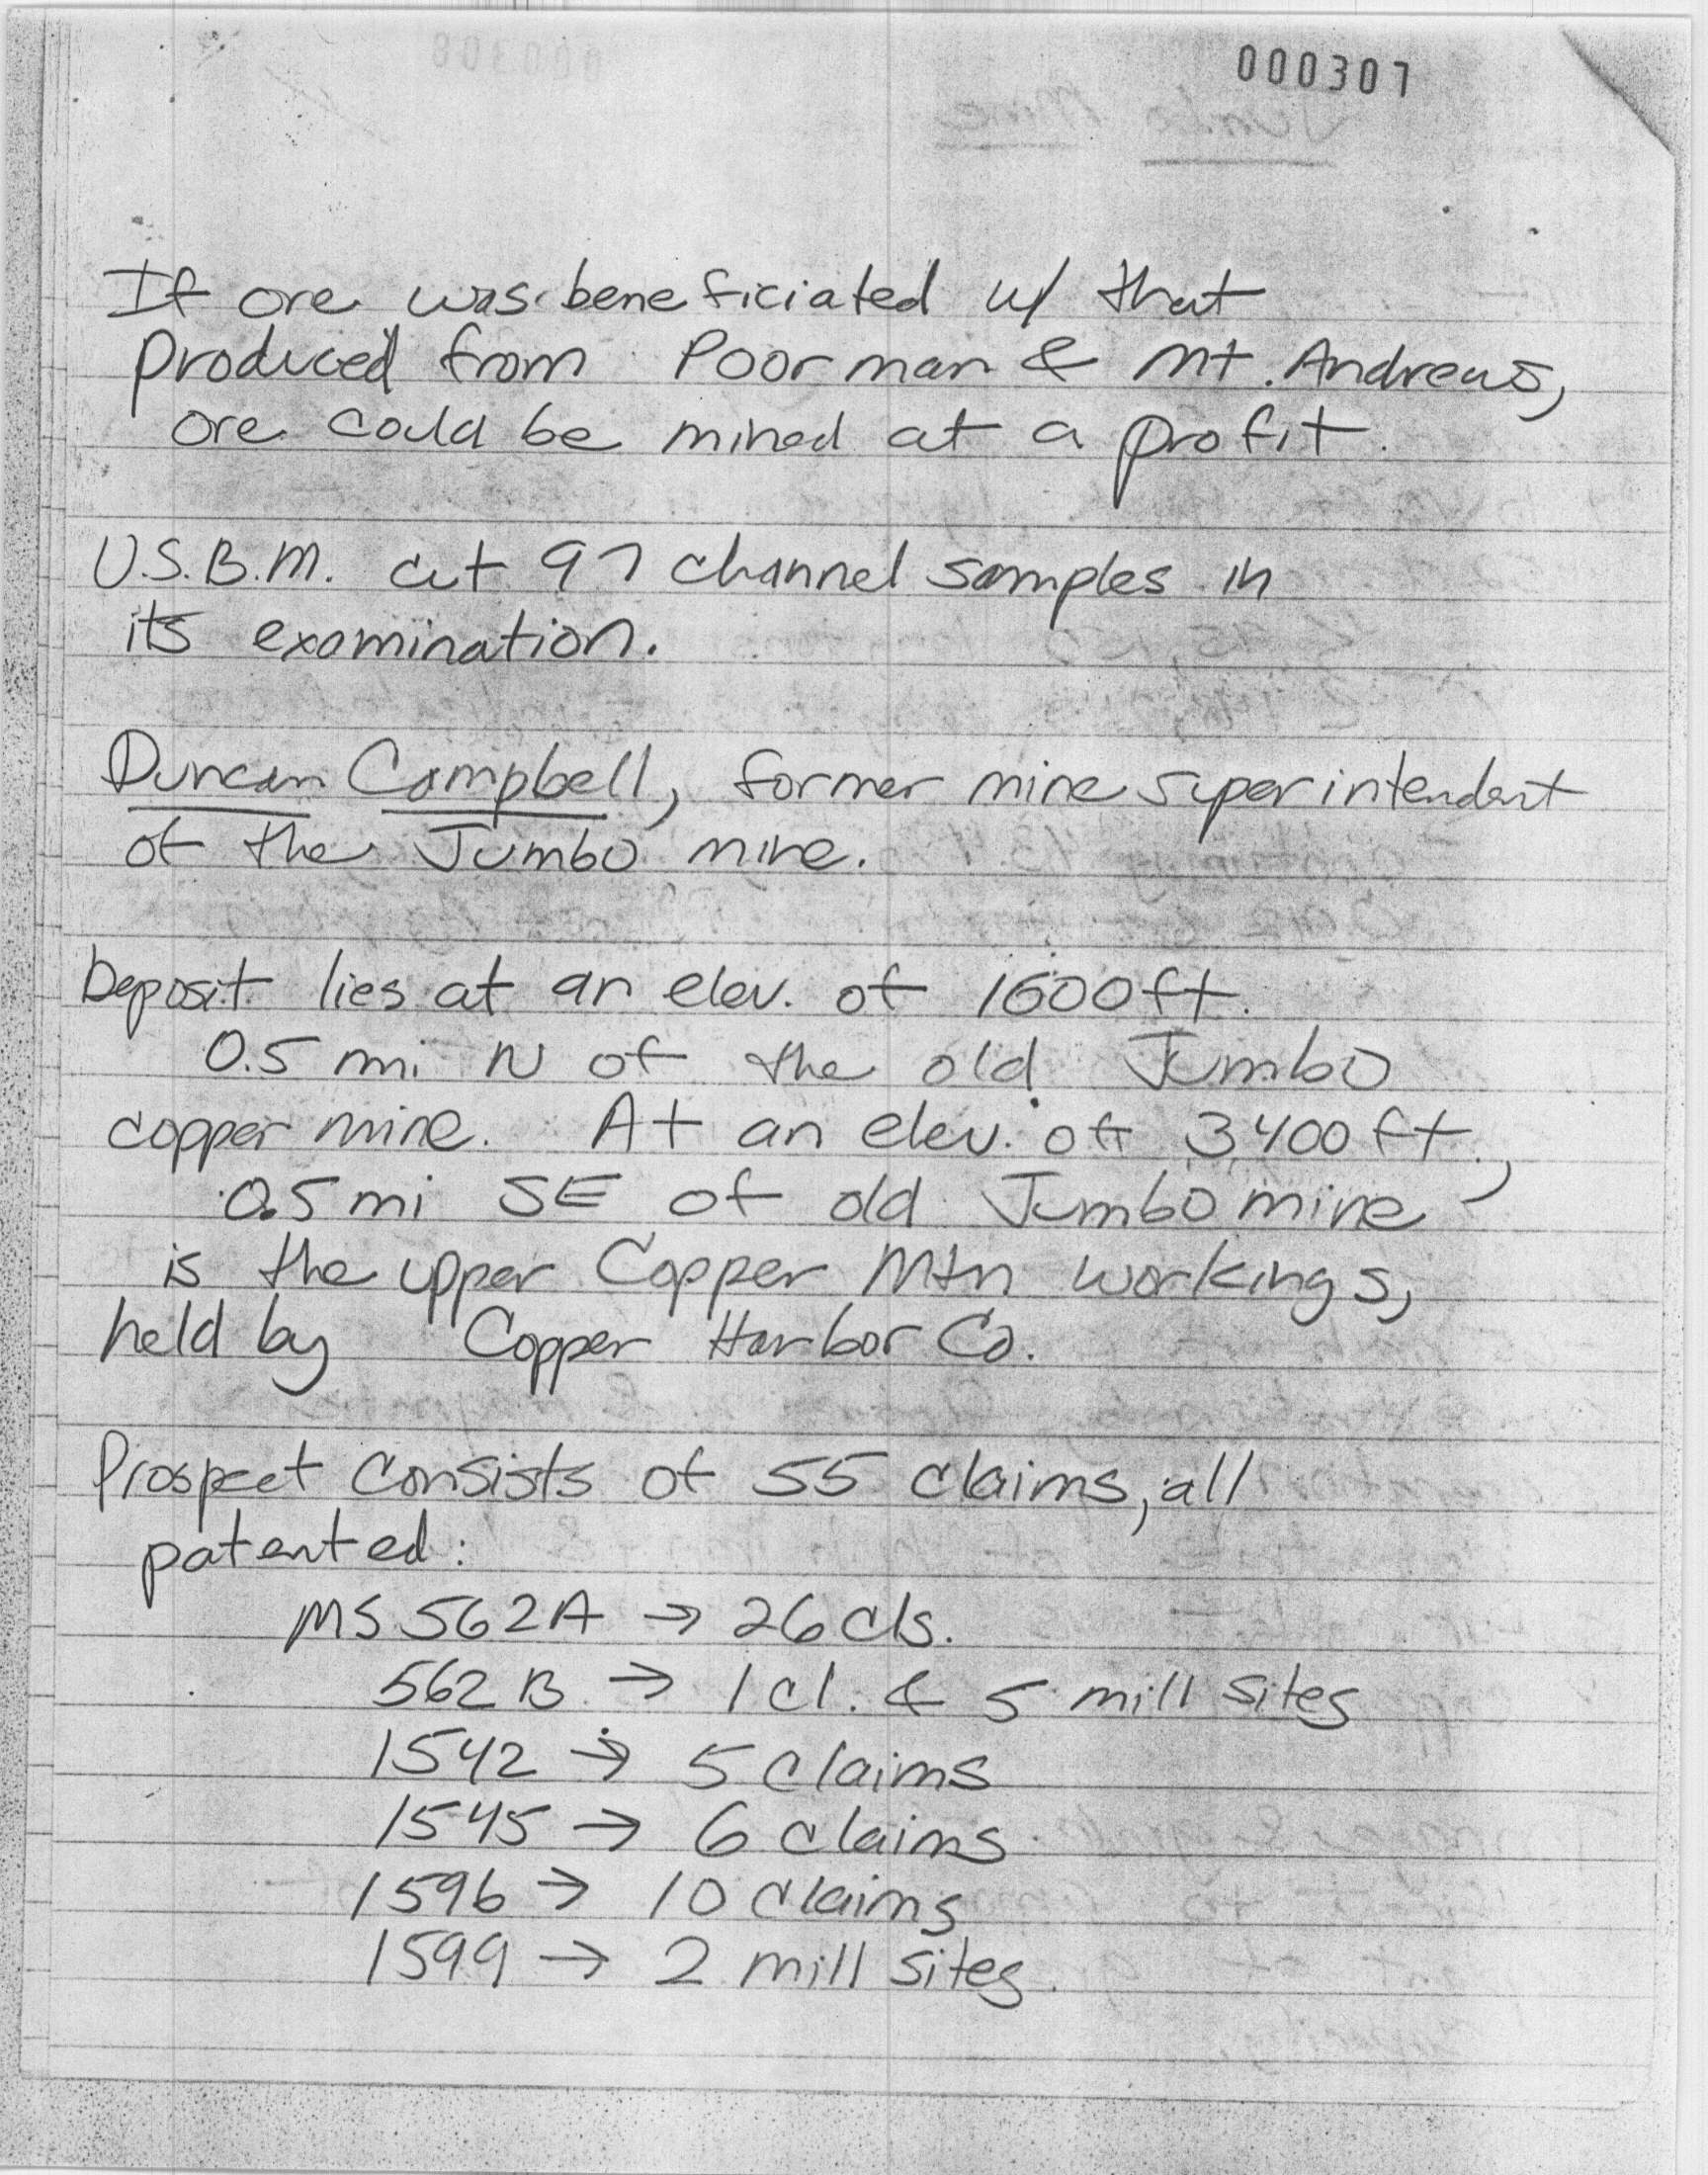 000307
If ore was beneficiated w/ that
produced from Poorman & Mt. Andrews,
ore could be mined at a profit.
U.S.B.M. cut 97 channel samples in
its examination.
Duncan Campbell, former mine superintendent
of the Jumbo mine.
Deposit lies at an elev. of 1600 ft.
0.5 mi N of the old Jumbo
copper mine. At an elev. of 3,400 ft.,
0.5 mi SE of old Jumbo mine
is the upper Copper Mtn workings,
held by Copper Harbor Co.
Prospect consists of 55 claims, all
patented:
MS 562A → 26 cls.
562 B → 1 cl. & 5 mill sites
1542 → 5 claims
1545 → 6 claims
1596 → 10 claims
1599 → 2 mill sites.